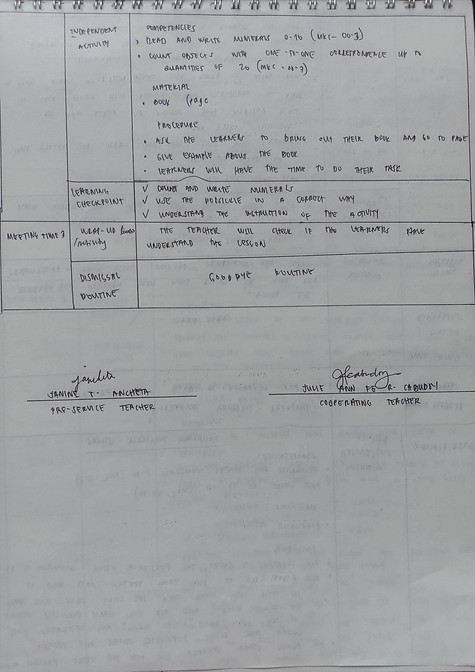 INDEPENDENT
ACTIVITY
COMPETENCIES
› READ AND WRITE NUMERALS 0-10 (MKC-00-3)
• COUNT OBJECTS WITH ONE-TO-ONE CORRESPONDENCE UP TO
QUANTITIES OF 20 (MKC-00-7)
MATERIAL
• BOOK (page
PROCEDURE
• ASK THE LEARNERS TO BRING OUT THEIR BOOK AND GO TO PAGE
• GIVE EXAMPLE ABOUT THE BOOK
• LEARNERS WILL HAVE THE TIME TO DO THEIR TASK
LEARNING
CHECKPOINT
✓ COUNT AND WRITE NUMERALS
✓ USE THE POPSICKLE IN A CORRECT WAY
✓ UNDERSTAND THE INSTRUCTION OF THE ACTIVITY
MEETING TIME 3
WRAP-UP
/ACTIVITY
THE TEACHER WILL CHECK IF THE LEARNERS HAVE
UNDERSTAND THE LESSON
DISMISSAL
ROUTINE
GOODBYE ROUTINE
JANINE T. ANCHETA
PRE-SERVICE TEACHER
JULIE ANN FE R. CABUDOY
COOPERATING TEACHER